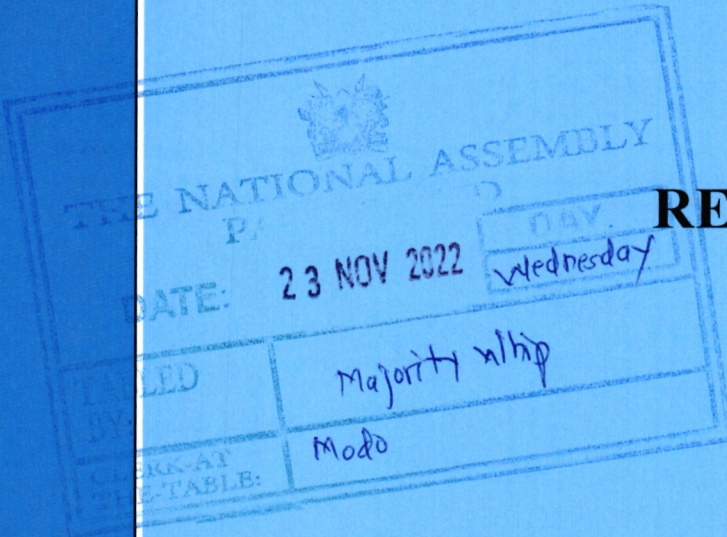 THE NATIONAL ASSEMBLY
RE
DAY.
DATE: 23 NOV 2022 Wednesday
TABLED BY: Majority Whip
CLERK-AT THE-TABLE: Modo